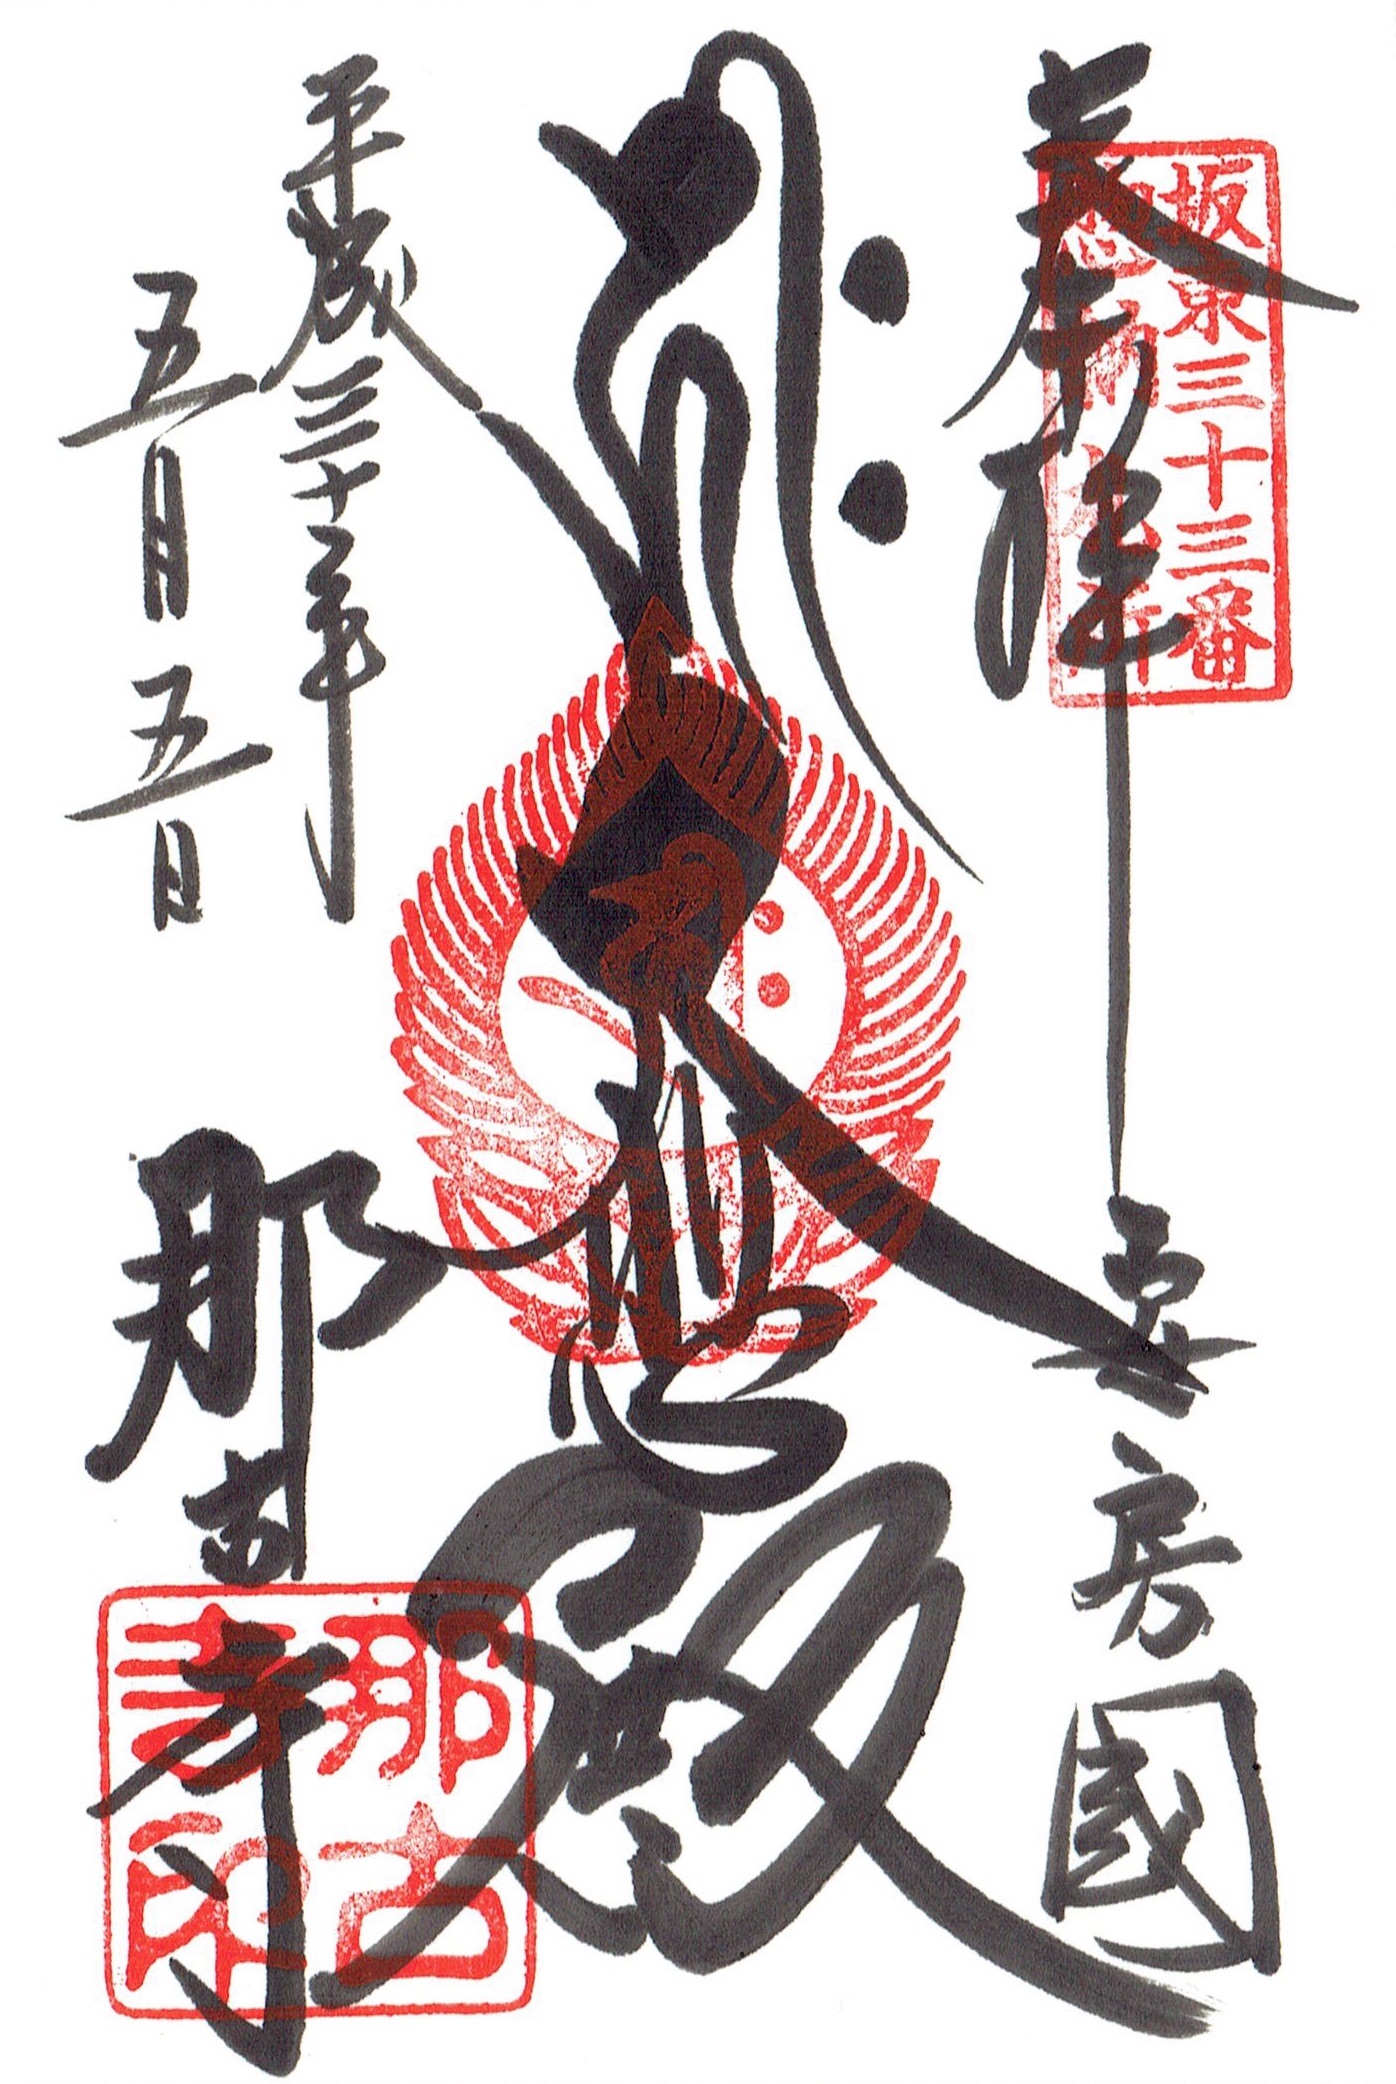 奉拝
坂東三十三番
納札所
安房國
ह्रीः
悲殿
平成三十年
五月五日
那古寺
那古寺印